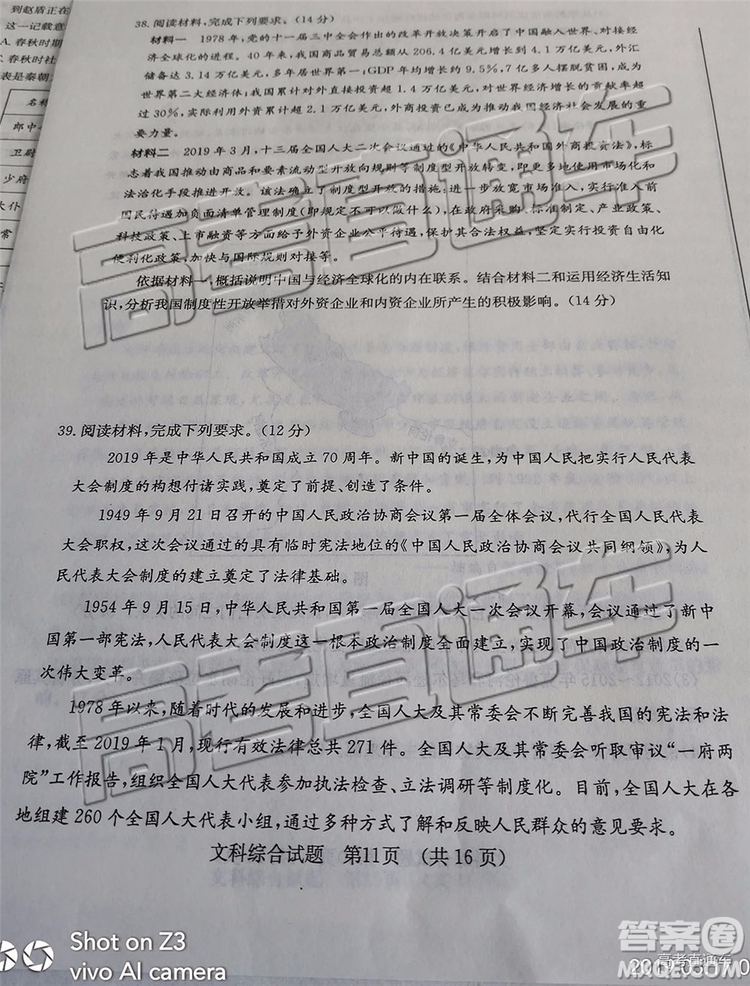 到赵盾正在
这一记载意
A. 春秋时期
C. 春秋时社
表是秦朝
名称
郎中
卫尉
少府
38. 阅读材料,完成下列要求。(14 分)
材料一 1978 年,党的十一届三中全会作出的改革开放决策开启了中国融入世界、对接经
济全球化的进程。40 年来,我国商品贸易总额从 206.4 亿美元增长到 4.1 万亿美元,外汇
储备达 3.14 万亿美元,多年居世界第一;GDP 年均增长约 9.5%,7 亿多人摆脱贫困,成为
世界第二大经济体;我国累计对外直接投资超 1.4 万亿美元,对世界经济增长的贡献率超
过 30%,实际利用外资累计超 2.1 万亿美元,外商投资已成为推动我国经济社会发展的重
要力量。
材料二 2019 年 3 月,十三届全国人大二次会议通过的《中华人民共和国外商投资法》,标
志着我国推动由商品和要素流动型开放向规则等制度型开放转变,即更多地使用市场化和
法治化手段推进开放。该法确立了制度型开放的措施:进一步放宽市场准入,实行准入前
国民待遇加负面清单管理制度(即规定不可以做什么),在政府采购、标准制定、产业政策、
科技政策、上市融资等方面给予外资企业公平待遇,保护其合法权益,坚定实行投资自由化
便利化政策,加快与国际规则对接等。
依据材料一,概括说明中国与经济全球化的内在联系。结合材料二和运用经济生活知
识,分析我国制度性开放举措对外资企业和内资企业所产生的积极影响。(14 分)
39. 阅读材料,完成下列要求。(12 分)
2019 年是中华人民共和国成立 70 周年。新中国的诞生,为中国人民把实行人民代表
大会制度的构想付诸实践,奠定了前提、创造了条件。
1949 年 9 月 21 日召开的中国人民政治协商会议第一届全体会议,代行全国人民代表
大会职权,这次会议通过的具有临时宪法地位的《中国人民政治协商会议共同纲领》,为人
民代表大会制度的建立奠定了法律基础。
1954 年 9 月 15 日,中华人民共和国第一届全国人大一次会议开幕,会议通过了新中
国第一部宪法,人民代表大会制度这一根本政治制度全面建立,实现了中国政治制度的一
次伟大变革。
1978 年以来,随着时代的发展和进步,全国人大及其常委会不断完善我国的宪法和法
律,截至 2019 年 1 月,现行有效法律总共 271 件。全国人大及其常委会听取审议“一府两
院”工作报告,组织全国人大代表参加执法检查、立法调研等制度化。目前,全国人大在各
地组建 260 个全国人大代表小组,通过多种方式了解和反映人民群众的意见要求。
文科综合试题 第11页 (共 16 页)
高考直通车
高考直通车
Shot on Z3
vivo AI camera
答案圈
高考直通车
MXQE.COM